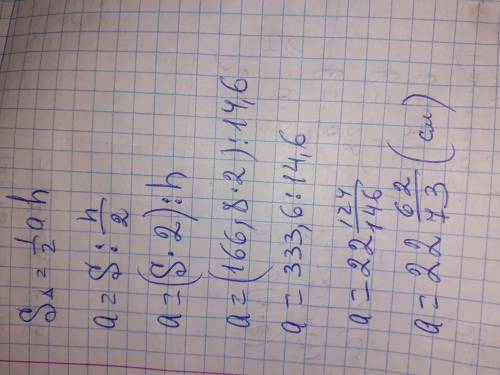 S△ = 1/2 a h
a = S : h/2
a = (S · 2) : h
a = (166,8 · 2) : 14,6
a = 333,6 : 14,6
a = 22 124/146
a = 22 62/73 (см)